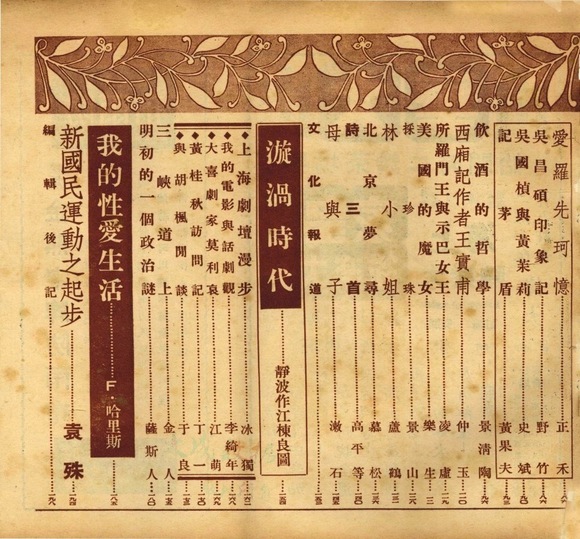 愛羅先珂憶……正禾
吳昌碩印象記……野竹
吳國楨與黃茉莉……史斌
記茅盾……黃果夫
飲酒的哲學……景清陶
西廂記作者王實甫……仲玉
所羅門王與示巴女王……凌虛
美國的魔女……樂生
採珍珠……景山
林小姐……蘆鶴
北京夢尋……慕松
詩三首……高平等
母與子……漱石
文化報道
漩渦時代……靜波作江棟良圖
◆上海劇壇漫步……冰獨
◆我的電影與話劇觀……李綺年
◆大喜劇家莫利哀……江萌
◆黃桂秋訪問記……丁一
◆與胡楓閒談……于良
三峽道上……金人
明初的一個政治謎……薩斯人
我的性愛生活……F·哈里斯
新國民運動之起步……袁殊
編輯後記